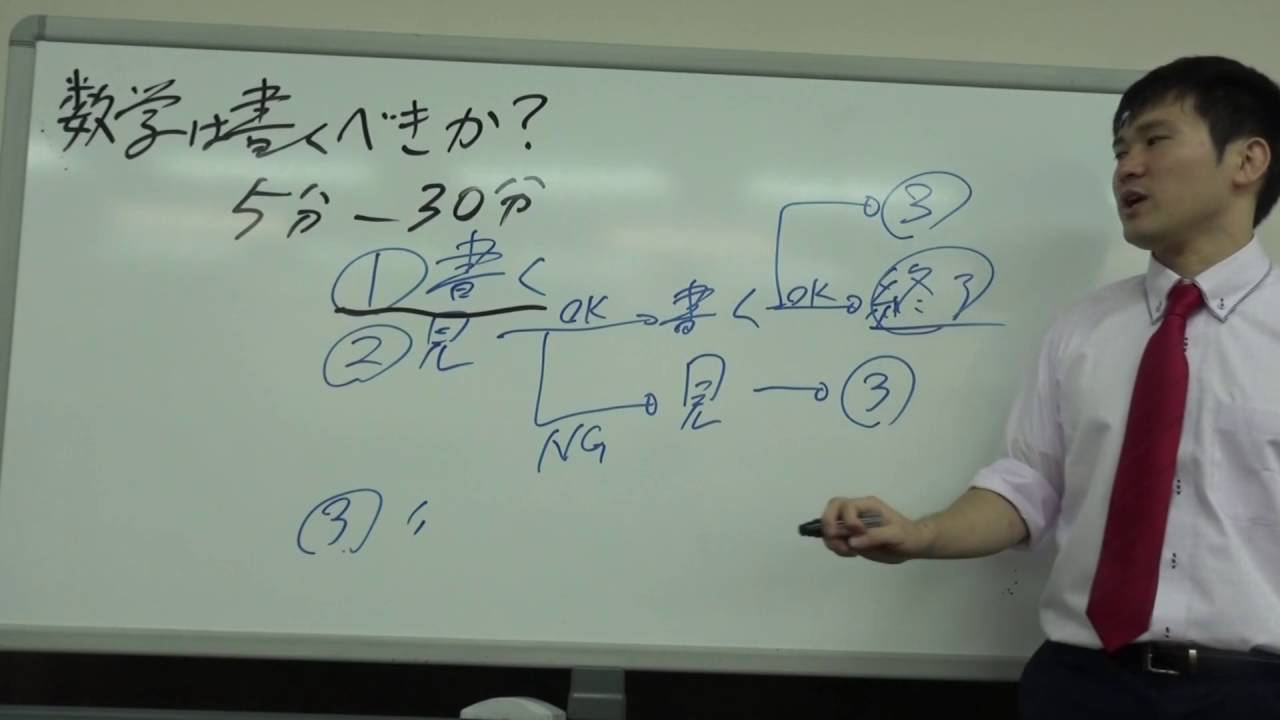 数学は書くべきか?
5分-30分
③
①書く
OK 書く OK 終了
②見
NG 見 ③
③〃